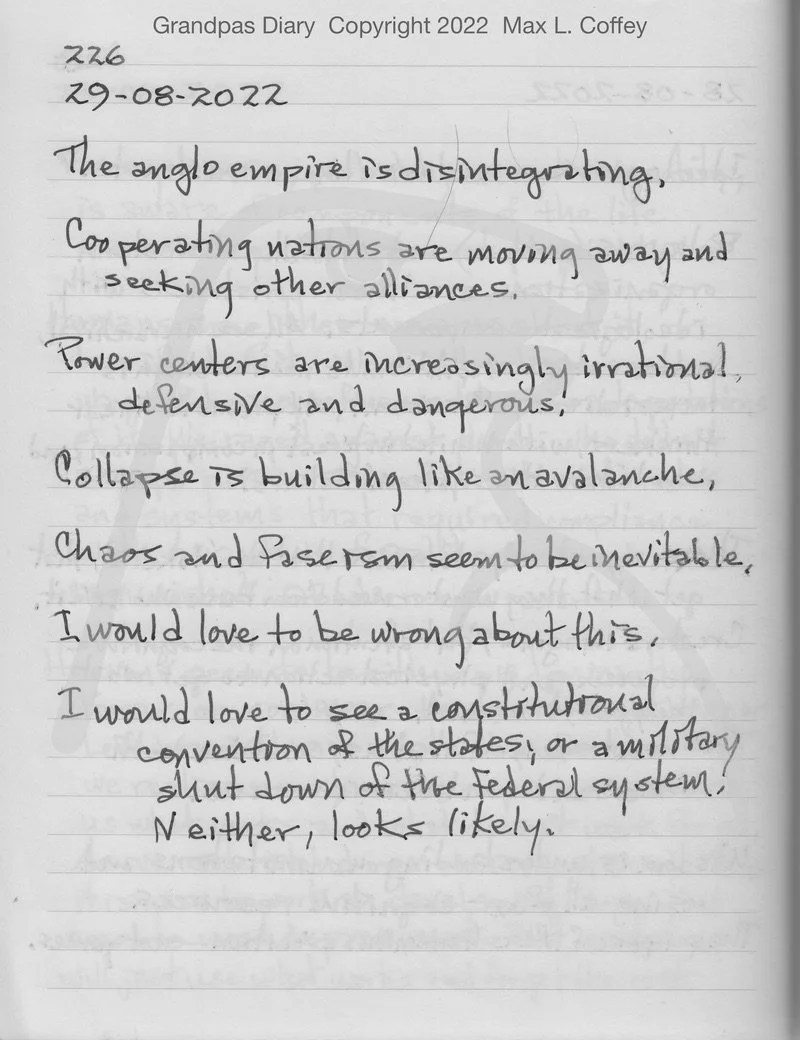 Grandpas Diary Copyright 2022 Max L. Coffey
226
29-08-2022
The anglo empire is disintegrating.
Cooperating nations are moving away and
seeking other alliances.
Power centers are increasingly irrational,
defensive and dangerous!
Collapse is building like an avalanche,
Chaos and fascism seem to be inevitable,
I would love to be wrong about this.
I would love to see a constitutional
convention of the states; or a military
shut down of the Federal system!
Neither, looks likely.